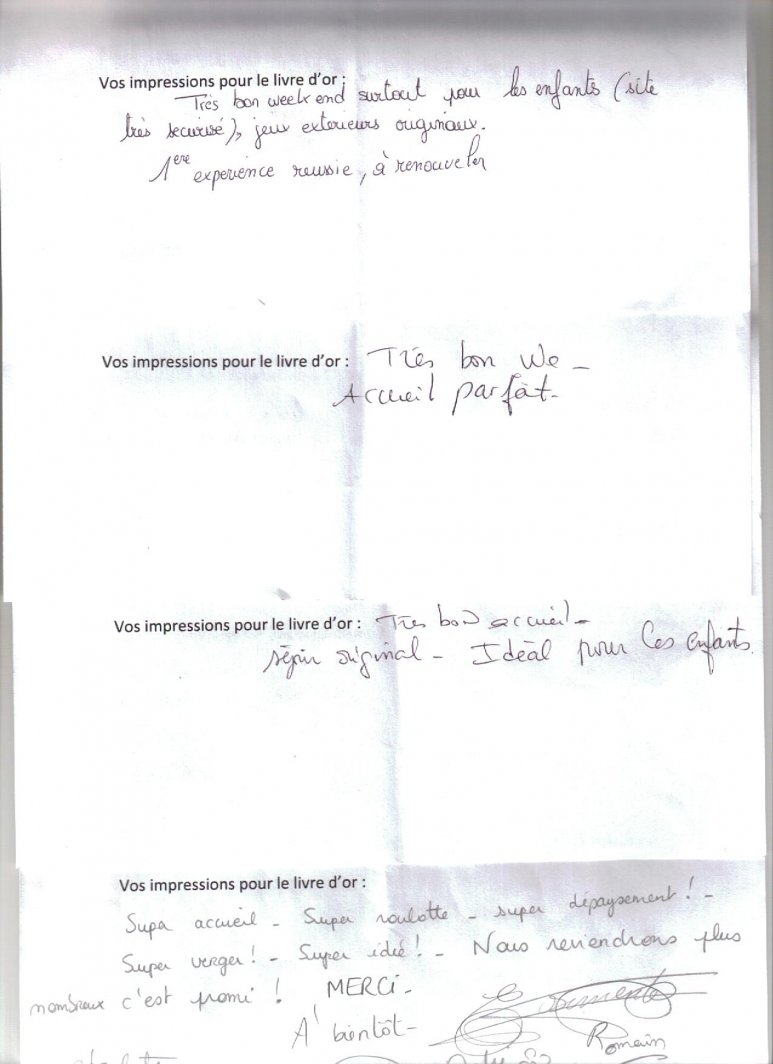 Vos impressions pour le livre d'or :
Très bon week end surtout pour les enfants (site
très securisé), jeux exterieurs originaux.
1ere experience reussie, à renouveler
Vos impressions pour le livre d'or : Très bon We -
Accueil parfait -
Vos impressions pour le livre d'or : Très bon accueil -
séjour original - Idéal pour les enfants.
Vos impressions pour le livre d'or :
Super accueil - Super roulotte - super dépaysement ! -
Super verger ! - Super idée ! - Nous reviendrons plus
nombreux c'est promi ! MERCi -
A bientôt -
Romain